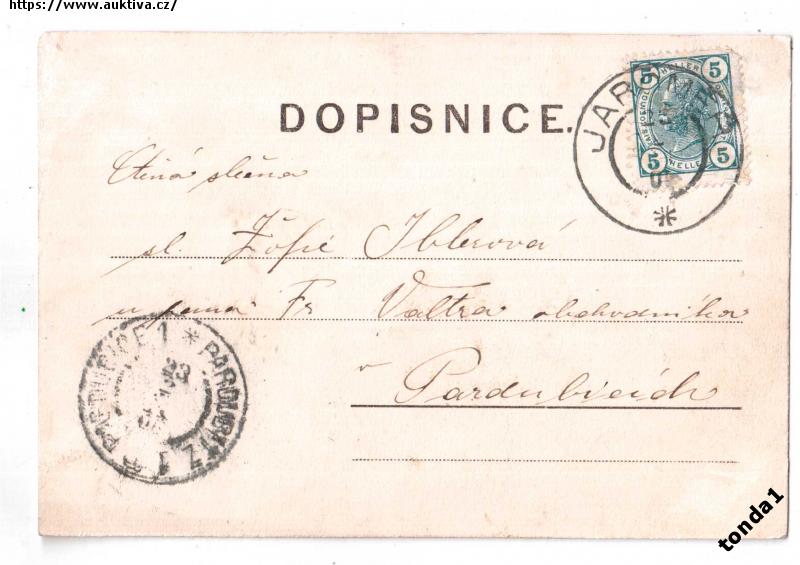 https://www.auktiva.cz/
DOPISNICE.
5 HELLER 5
5 HELLER 5
JAROM
Ctěná slečna
sl. Žofie Iblerová
u pana Fr Valtra obchodníka
v
Pardubicích
PARDUBICE 1 * PARDUBITZ 1
tonda1